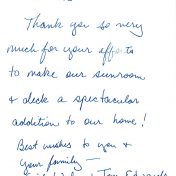 Thank you so very
much for your efforts
to make our sunroom
& deck a spectacular
addition to our home!
Best wishes to you &
your family —
Tom Edwards